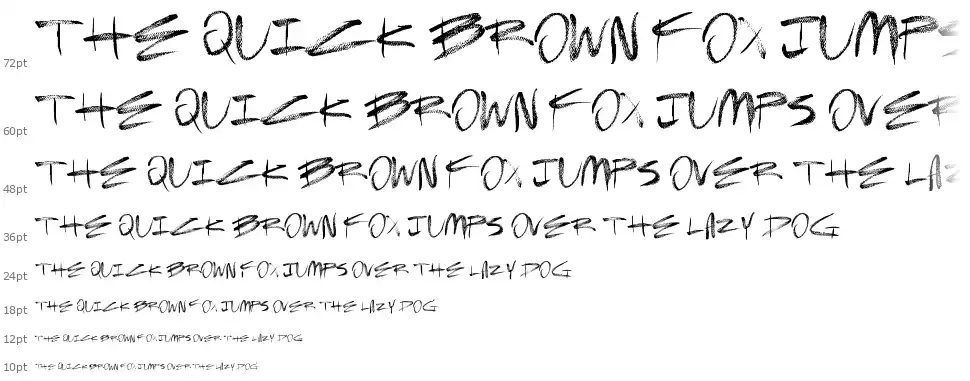 72pt THE QUICK BROWN FOX JUMPS
60pt THE QUICK BROWN FOX JUMPS OVER
48pt THE QUICK BROWN FOX JUMPS OVER THE LAZ
36pt THE QUICK BROWN FOX JUMPS OVER THE LAZY DOG
24pt THE QUICK BROWN FOX JUMPS OVER THE LAZY DOG
18pt THE QUICK BROWN FOX JUMPS OVER THE LAZY DOG
12pt THE QUICK BROWN FOX JUMPS OVER THE LAZY DOG
10pt THE QUICK BROWN FOX JUMPS OVER THE LAZY DOG